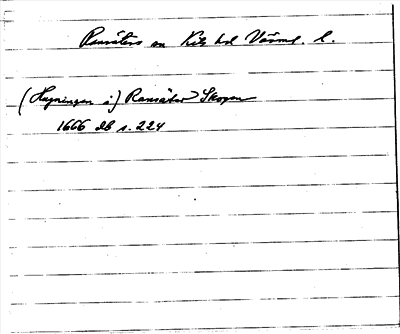 Ransäters sn Kils hd Värml. l.
(Hygningen i) Ransäter Skogen
1666 db s. 224